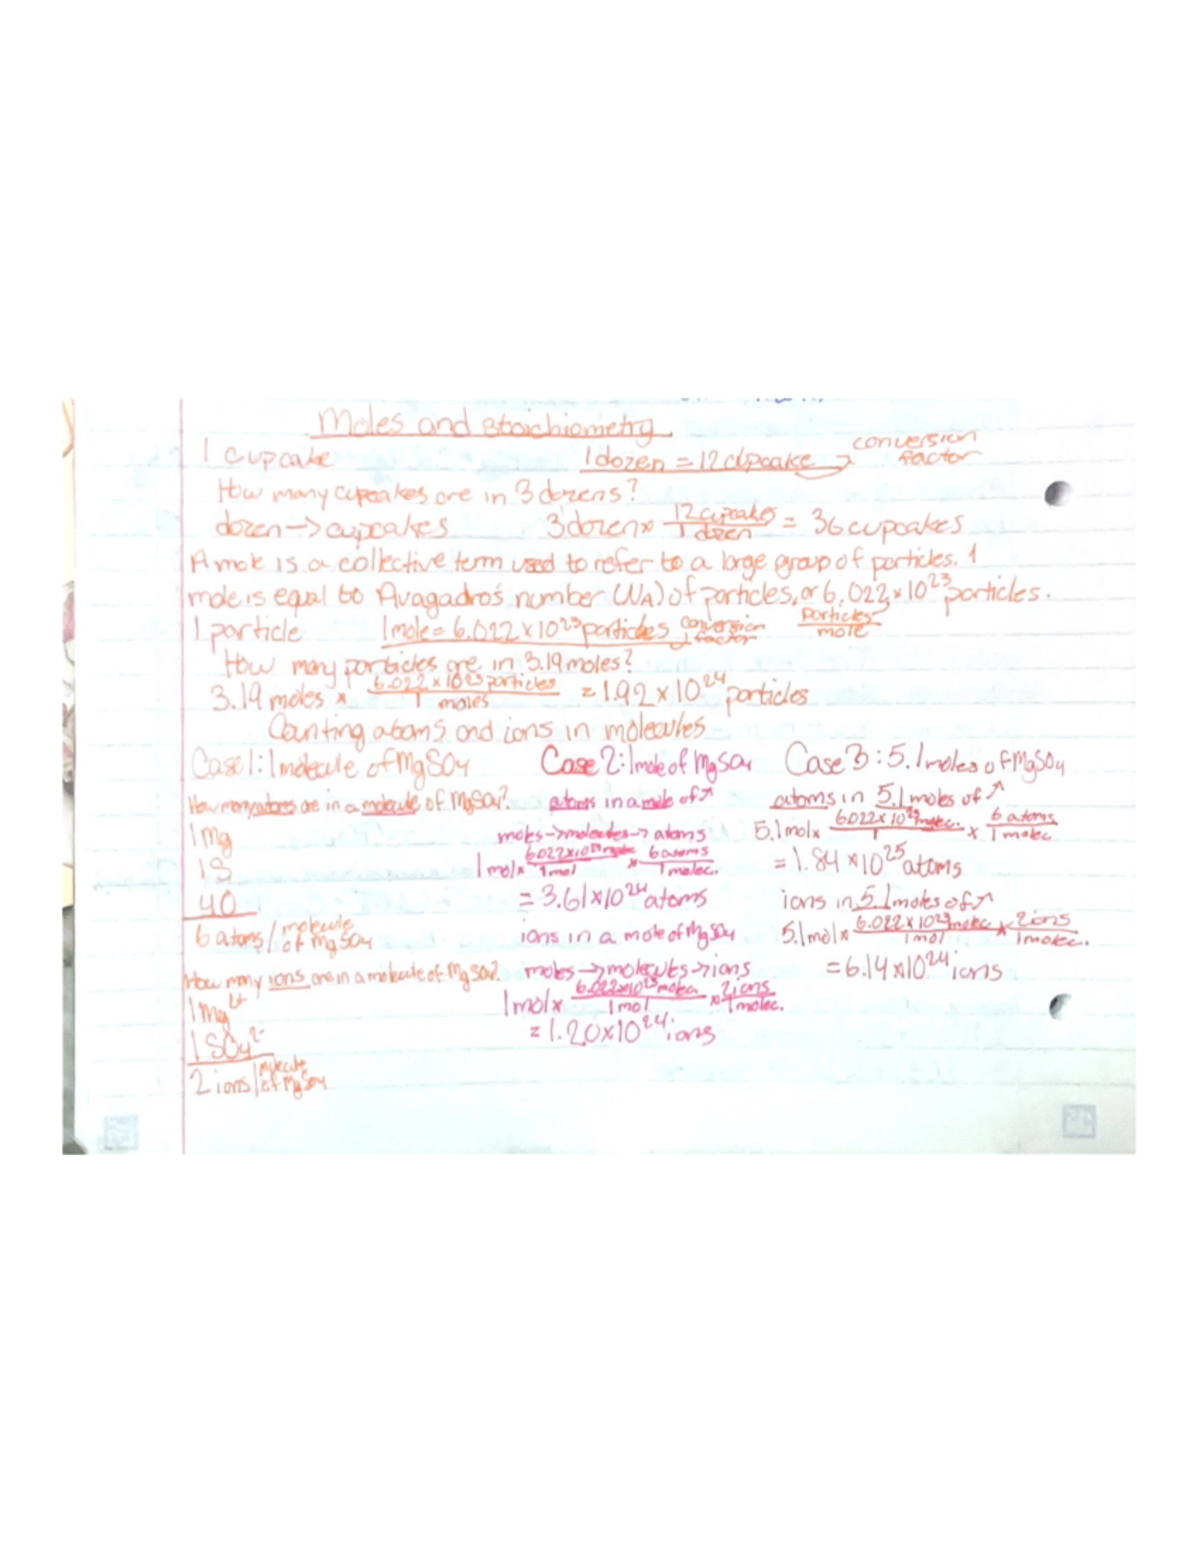 Moles and Stoichiometry
1 cupcake 1 dozen = 12 cupcake → conversion factor
How many cupcakes are in 3 dozens?
dozen → cupcakes 3 dozen × 12 cupcakes / 1 dozen = 36 cupcakes
A mole is a collective term used to refer to a large group of particles. 1
mole is equal to Avagadro's number (NA) of particles, or 6.022 × 10²³ particles.
1 particle 1 mole = 6.022 × 10²³ particles conversion factor particles / mole
How many particles are in 3.19 moles?
3.19 moles × 6.022 × 10²³ particles / 1 moles = 1.92 × 10²⁴ particles
Counting atoms and ions in molecules
Case 1: 1 molecule of MgSO₄
How many atoms are in a molecule of MgSO₄?
1 Mg
1 S
4 O
6 atoms / molecule of MgSO₄
How many ions are in a molecule of MgSO₄?
1 Mg²⁺
1 SO₄²⁻
2 ions / molecule of MgSO₄
Case 2: 1 mole of MgSO₄
atoms in a mole of ↗
moles → molecules → atoms
1 mol × 6.022 × 10²³ molec / 1 mol × 6 atoms / 1 molec.
= 3.61 × 10²⁴ atoms
ions in a mole of MgSO₄
moles → molecules → ions
1 mol × 6.022 × 10²³ molec / 1 mol × 2 ions / 1 molec.
= 1.20 × 10²⁴ ions
Case 3: 5.1 moles of MgSO₄
atoms in 5.1 moles of ↗
5.1 mol × 6.022 × 10²³ molec. / 1 × 6 atoms / 1 molec
= 1.84 × 10²⁵ atoms
ions in 5.1 moles of ↗
5.1 mol × 6.022 × 10²³ molec / 1 mol × 2 ions / 1 molec.
= 6.14 × 10²⁴ ions